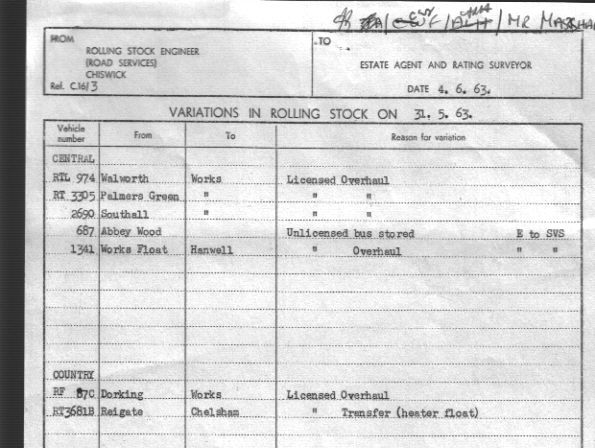 MR MARSHA
FROM
ROLLING STOCK ENGINEER
(ROAD SERVICES)
CHISWICK
Ref. C.16/3
TO
ESTATE AGENT AND RATING SURVEYOR
DATE 4. 6. 63.
VARIATIONS IN ROLLING STOCK ON 31. 5. 63.
Vehicle number From To Reason for variation
CENTRAL
RTL 974 Walworth Works Licensed Overhaul
RT 3305 Palmers Green " " "
2690 Southall " " "
687 Abbey Wood Unlicensed bus stored E to SVS
1341 Works Float Hanwell " Overhaul " "
COUNTRY
RF 87C Dorking Works Licensed Overhaul
RT3681B Reigate Chelsham " Transfer (heater float)